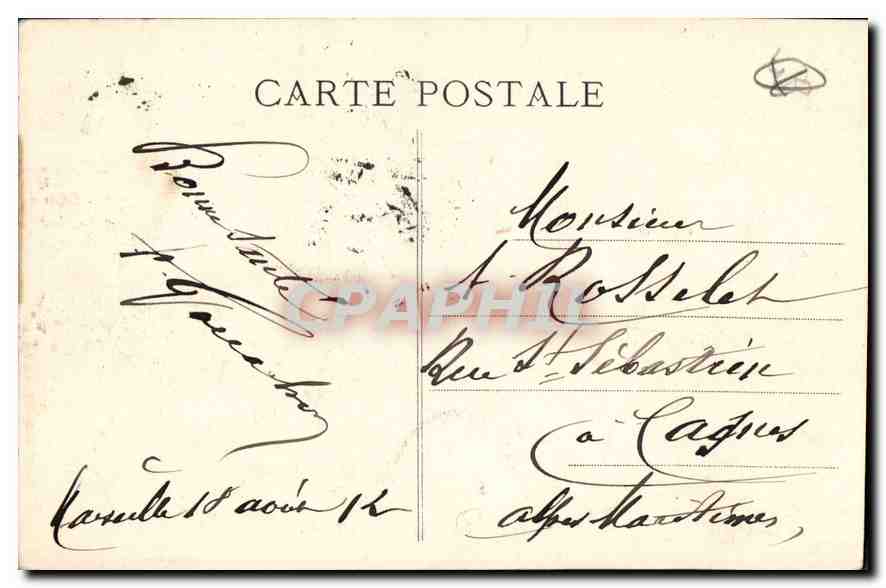 CARTE POSTALE
Bonne Santé
Marseille 18 août 12
Monsieur
Rosselet
Rue St Sébastien
à Cagnes
Alpes Maritimes,
CPAPHIL